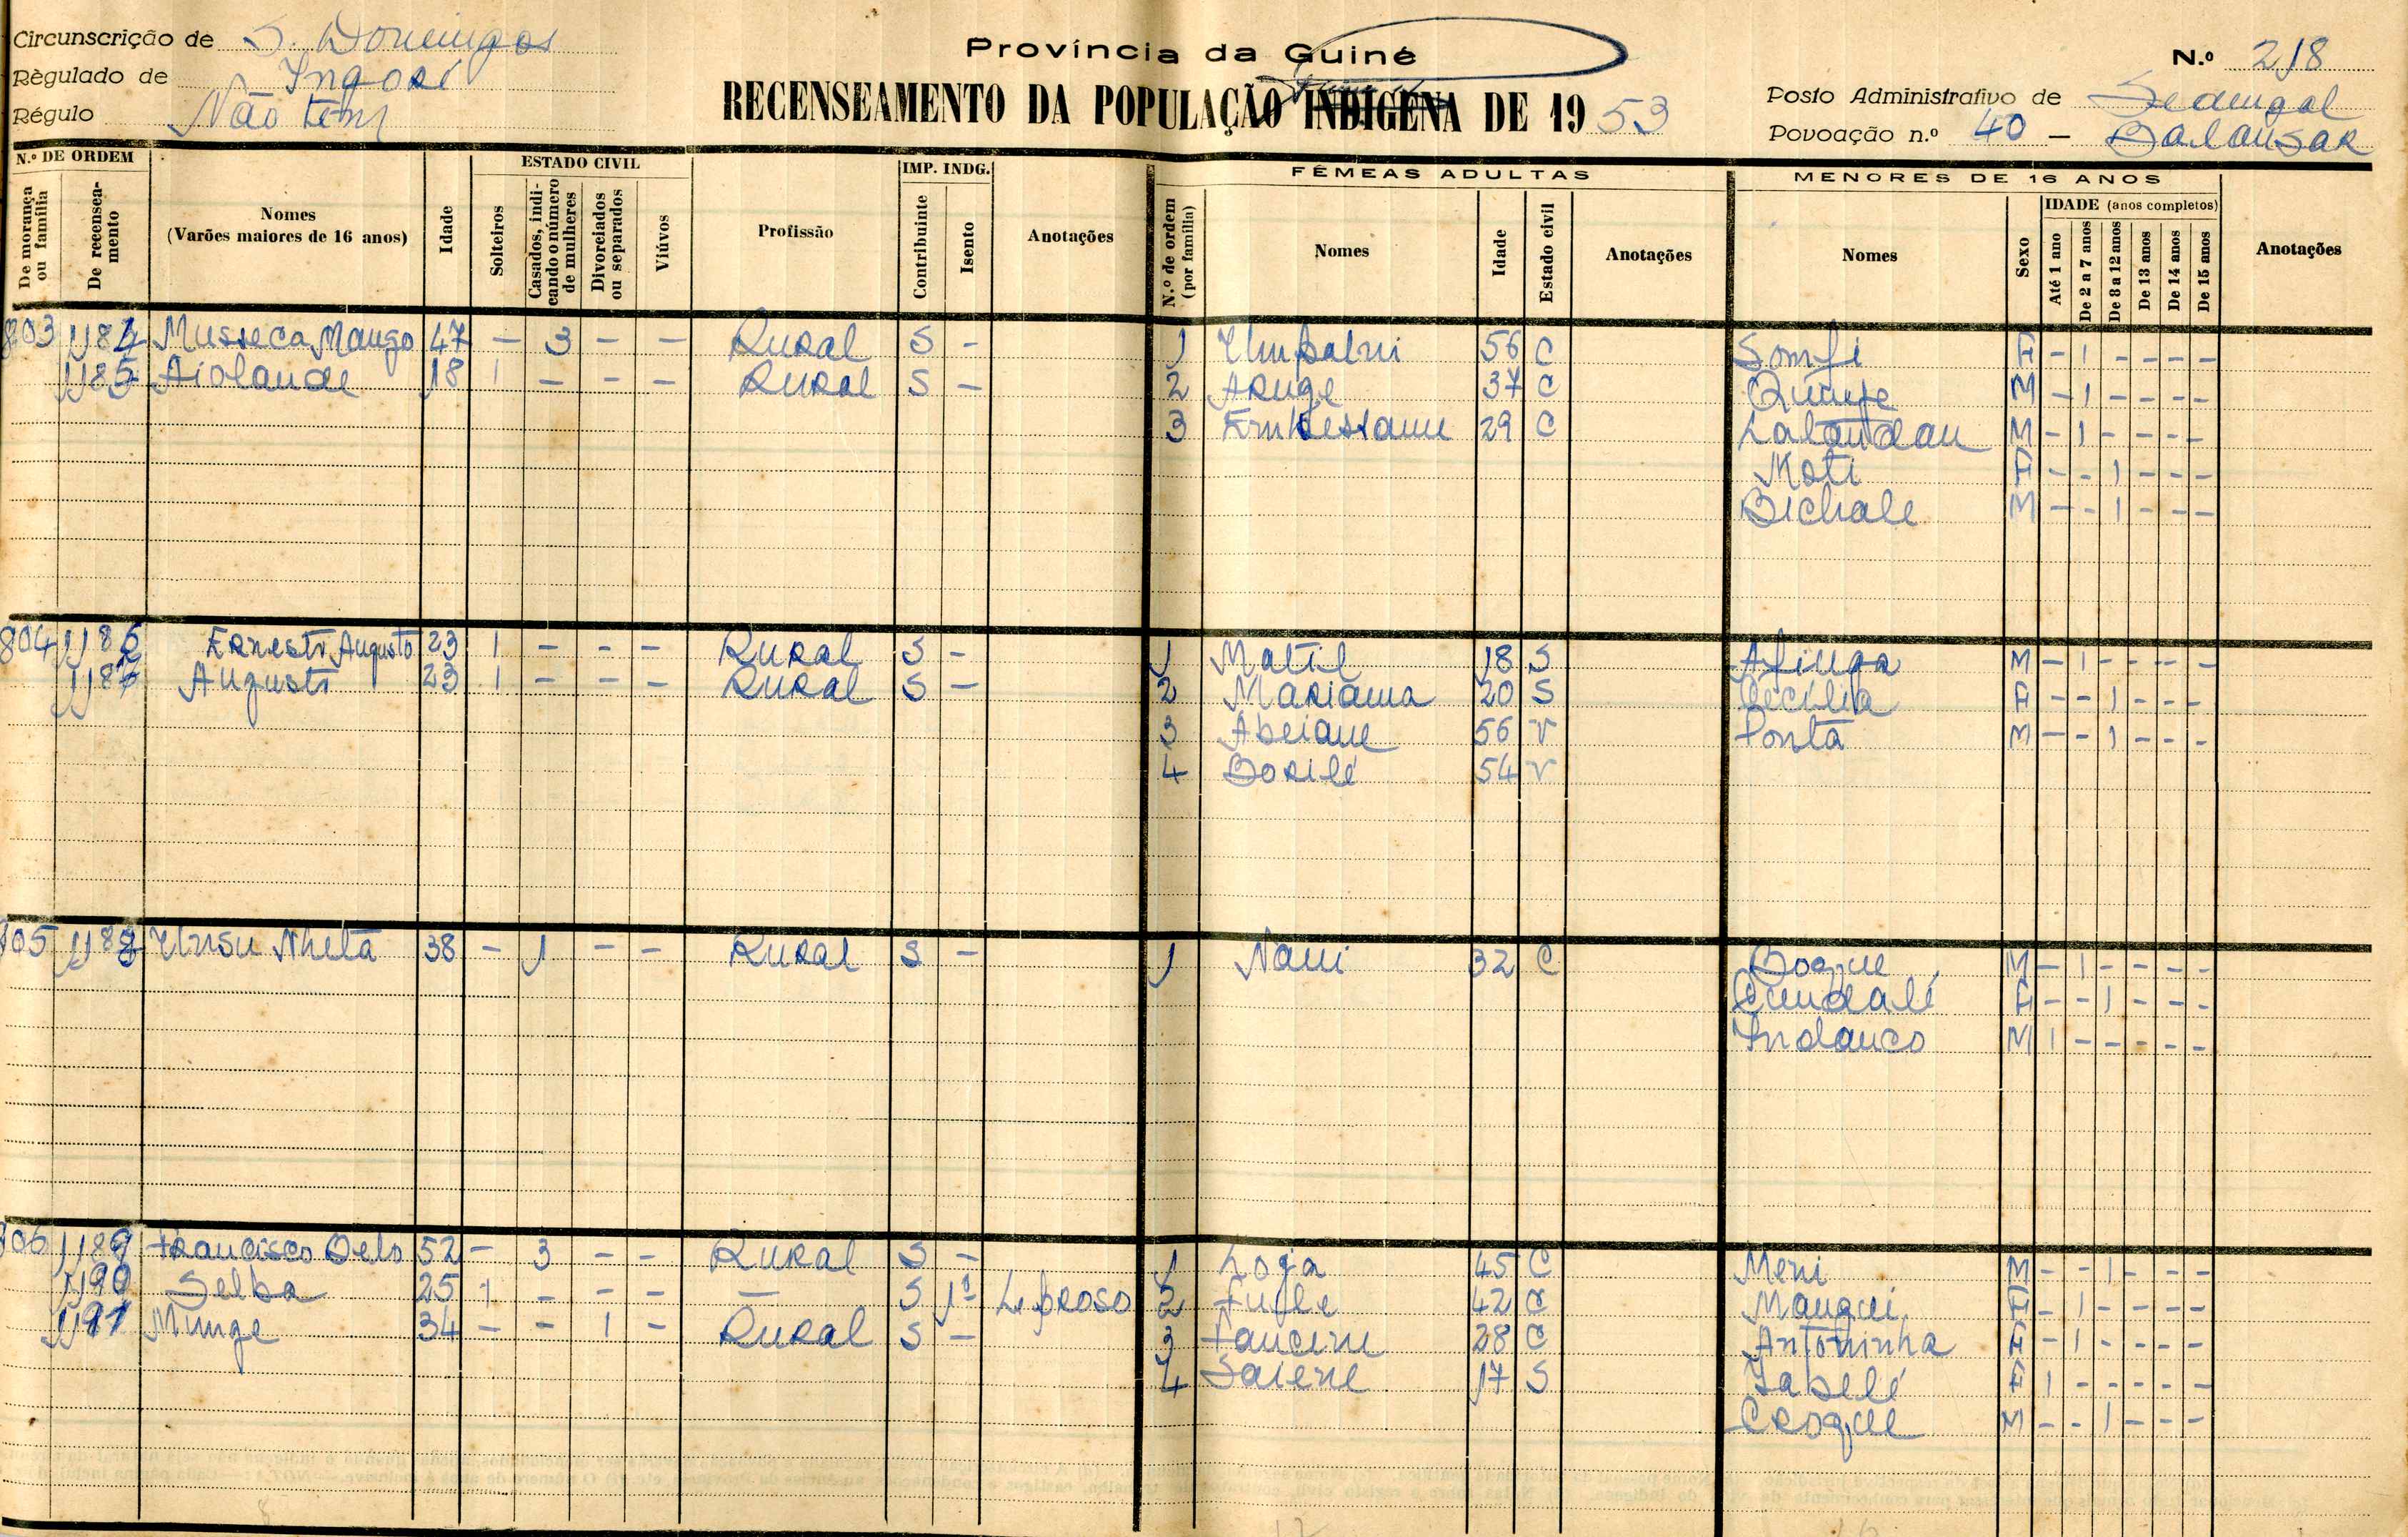 Circunscrição de S. Domingos
Província da Guiné
N.º 218
Règulado de Ingoré
Posto Administrativo de
RECENSEAMENTO DA POPULAÇÃO INDIGENA DE 19 53
Régulo Não tem
Povoação n.º 40 –
N.º DE ORDEM
ESTADO CIVIL
IMP. INDG.
FÊMEAS ADULTAS
MENORES DE 16 ANOS
De morança ou família
De recenseamento
Nomes (Varões maiores de 16 anos)
Idade
Solteiros
Casados, indicando o número de mulheres
Divorciados ou separados
Viúvos
Profissão
Contribuinte
Isento
Anotações
N.º de ordem (por família)
Nomes
Idade
Estado civil
Anotações
Nomes
Sexo
IDADE (anos completos)
Até 1 ano
De 2 a 7 anos
De 8 a 12 anos
De 13 anos
De 14 anos
De 15 anos
Anotações
803 1184 Musseca Mango 47 – 3 – – Rural S – 1 56 C Somfi F – 1 – – – –
1185 Aiolande 18 1 – – – Rural S – 2 Aruge 37 C M – 1 – – – –
3 29 C Lalandan M – 1 – – – –
Moti F – – 1 – – –
Bichale M – – 1 – – –
804 1186 Ernesto Augusto 23 1 – – – Rural S – 1 Matil 18 S Afinga M – 1 – – – –
1187 Augusto 23 1 – – – Rural S – 2 Mariama 20 S Cecília F – – 1 – – –
3 Abeiane 56 V Ponta M – – 1 – – –
4 Borilé 54 V
805 1188 38 – 1 – – Rural S – 1 Nani 32 C Boque M – 1 – – – –
Cundalé F – – 1 – – –
Indanco M 1 – – – – –
806 1189 Francisco 52 – 3 – – Rural S – 1 Loja 45 C Meni M – – 1 – – –
1190 Selba 25 1 – – – – S 1 Leproso 2 42 C Mangui F – 1 – – – –
1191 Munge 34 – – 1 – Rural S – 3 28 C Antoninha F – 1 – – – –
4 Saiene 17 S F 1 – – – – –
Croque M – – 1 – – –